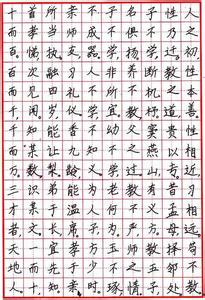 人之初,性本善。性相近,习相远。苟不教,
性乃迁。教之道,贵以专。昔孟母,择邻处。
子不学,断机杼。窦燕山,有义方。教五子,
名俱扬。养不教,父之过。教不严,师之惰。
子不学,非所宜。幼不学,老何为。玉不琢,
不成器。人不学,不知义。为人子,方少时。
亲师友,习礼仪。香九龄,能温席。孝于亲,
所当执。融四岁,能让梨。弟于长,宜先知。
首孝悌,次见闻,知某数,识某文。一而十,
十而百。百而千,千而万。三才者,天地人。